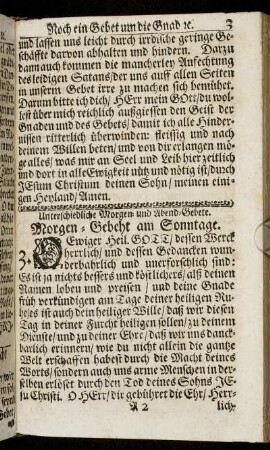 Noch ein Gebet um die Gnad ꝛc. 3
und lassen uns leicht durch irrdische geringe Ge-
schäffte darvon abhalten und hindern. Darzu
dann auch kommen die mancherley Anfechtung
des leidigen Satans / der uns auff allen Seiten
in unserm Gebet irre zu machen sich bemühet.
Darum bitte ich dich / HErr mein GOtt / du wol-
lest über mich reichlich außgiessen den Geist der
Gnaden und des Gebets / damit ich alle Hinder-
nissen ritterlich überwinden: fleissig und nach
deinem Willen beten / und von dir erlangen mö-
ge alles / was mir an Seel und Leib hier zeitlich
und dort in alle Ewigkeit nütz und nötig ist / durch
JEsum Christum deinen Sohn / meinen eini-
gen Heyland / Amen.
Unterschiedliche Morgen- und Abend-Gebete.
Morgen-Gebeht am Sonntage.
3. O Ewiger Heil. GOTT / dessen Werck
herrlich / und dessen Gedancken wun-
derbahrlich und unerforschlich sind:
Es ist ja nichts bessers und köstlichers / alß deinen
Namen loben und preisen / und deine Gnade
früh verkündigen am Tage deiner heiligen Ru-
he / es ist auch dein heiliger Wille / daß wir diesen
Tag in deiner Furcht heiligen sollen / zu deinem
Dienste / und zu deiner Ehre / daß wir uns danck-
barlich erinnern / wie du nicht allein die gantze
Welt erschaffen habest durch die Macht deines
Worts / sondern auch uns arme Menschen in der-
selben erlöset durch den Tod deines Sohns JE-
su Christi. O HErr / dir gebühret die Ehr / Herr-
A 2 lich-